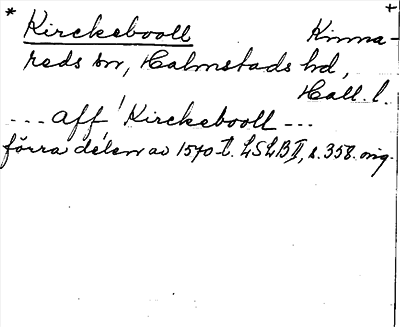 * Kirckebooll Kinna- +
reds sn, Halmstads hd,
Hall. l.
--- aff Kirckebooll ---
förra delen av 1570-t. LSLB II, s. 358. orig.